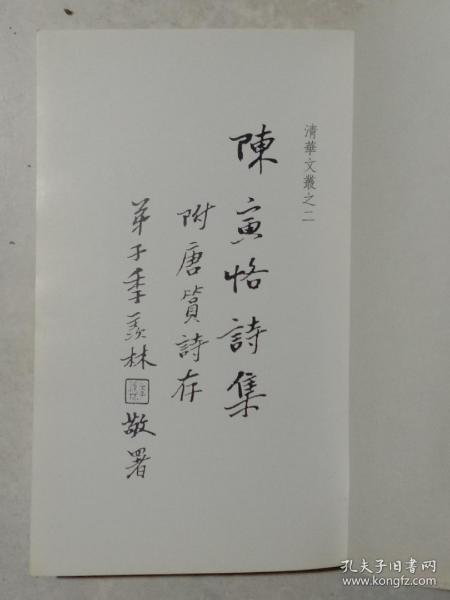 清華文叢之二
陳寅恪詩集
附唐篔詩存
弟子季羨林
敬署
孔夫子旧书网
www.kongfz.com